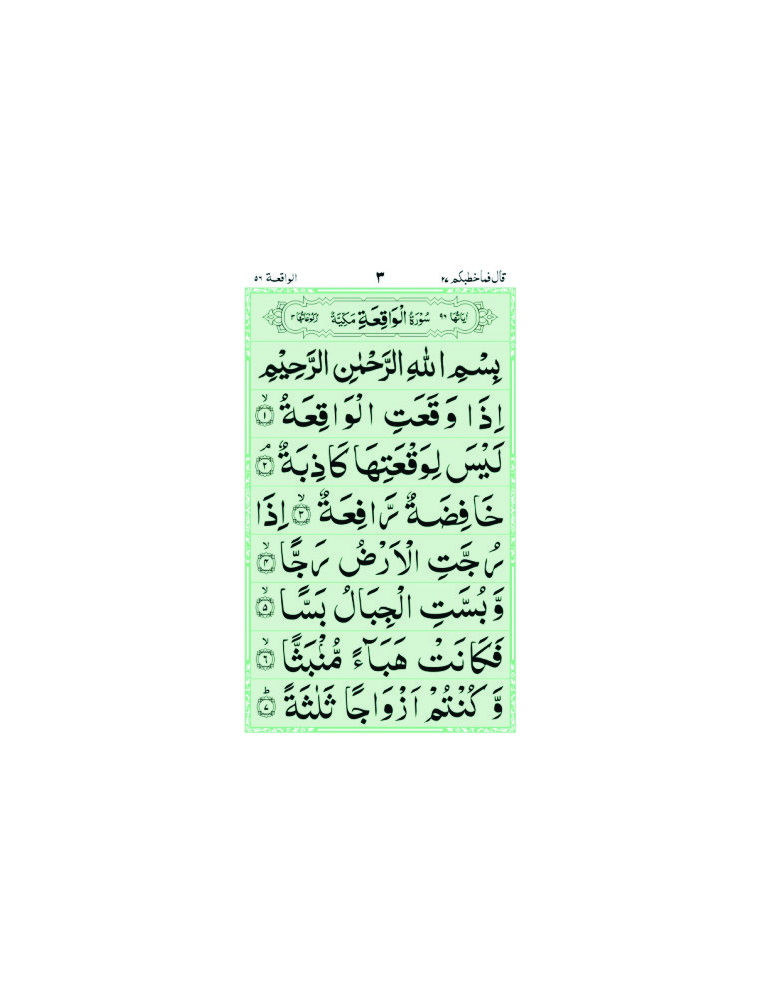 قال فما خطبكم ۲۷ ۳ الواقعة ۵۶
اٰيَاتُهَا ۹۶ سُوْرَةُ الْوَاقِعَةِ مَكِّيَّةٌ رُكُوْعَاتُهَا ۳
بِسْمِ اللّٰهِ الرَّحْمٰنِ الرَّحِيْمِ
اِذَا وَقَعَتِ الْوَاقِعَةُ ۙ﴿۱﴾
لَيْسَ لِوَقْعَتِهَا كَاذِبَةٌ ۘ﴿۲﴾
خَافِضَةٌ رَّافِعَةٌ ۙ﴿۳﴾ اِذَا
رُجَّتِ الْاَرْضُ رَجًّا ۙ﴿۴﴾
وَّ بُسَّتِ الْجِبَالُ بَسًّا ۙ﴿۵﴾
فَكَانَتْ هَبَآءً مُّنْۢبَثًّا ۙ﴿۶﴾
وَّ كُنْتُمْ اَزْوَاجًا ثَلٰثَةً ؕ﴿۷﴾